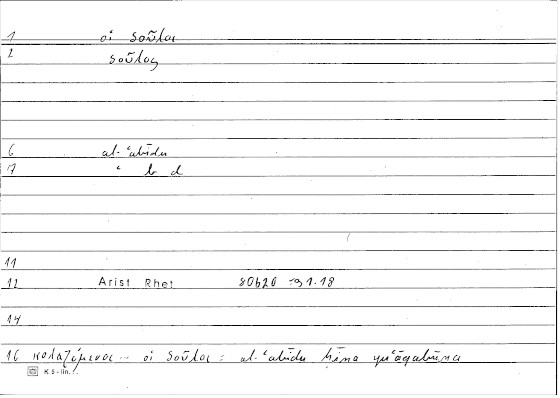 1 οἱ δοῦλοι
2 δοῦλος
6 al-ʿabīdu
7 ʿ b d
11
12 Arist Rhet 80b20 = 91.18
14
16 κολαζόμενοι ... οἱ δοῦλοι = al-ʿabīdu ḥīna yuʿāqabūna
K 5 - lin.